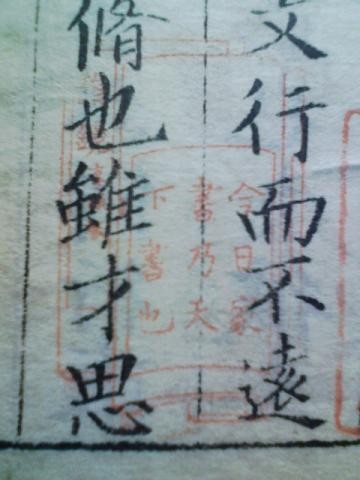 文行而不遠
脩也雖才思
今日家
書乃天
下書也